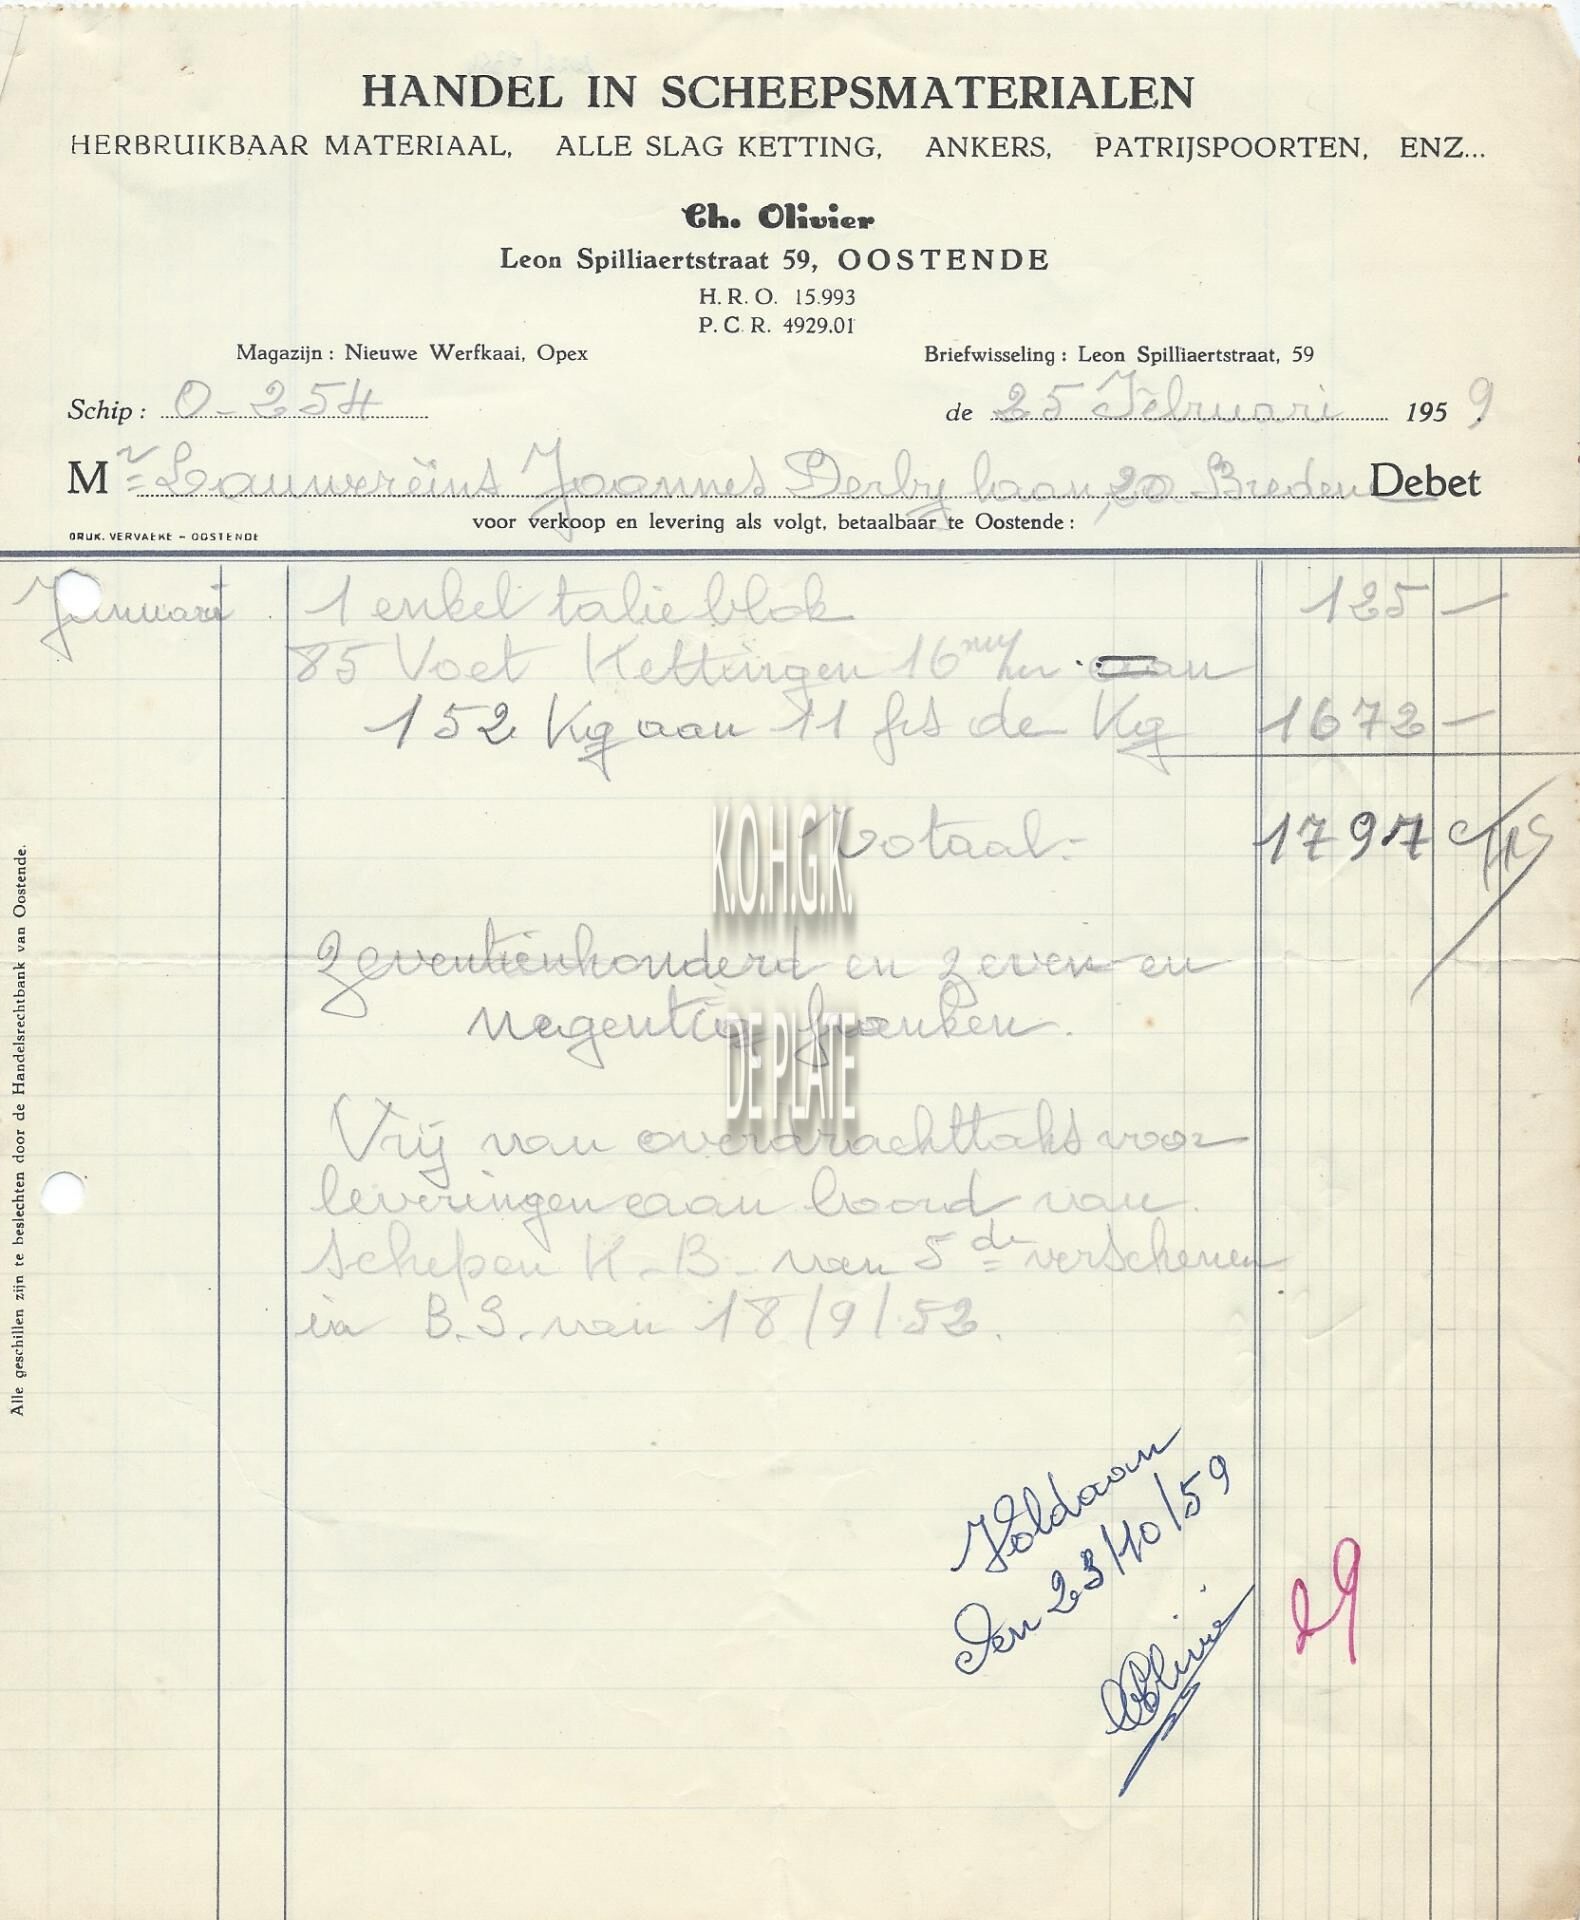 HANDEL IN SCHEEPSMATERIALEN
HERBRUIKBAAR MATERIAAL, ALLE SLAG KETTING, ANKERS, PATRIJSPOORTEN, ENZ...
Ch. Olivier
Leon Spilliaertstraat 59, OOSTENDE
H. R. O. 15.993
P. C. R. 4929.01
Magazijn : Nieuwe Werfkaai, Opex
Briefwisseling : Leon Spilliaertstraat, 59
Schip : O-254
de 25 Februari 1959
Mr Lauwereins Joannes Derbylaan, 20 Bredene Debet
voor verkoop en levering als volgt, betaalbaar te Oostende :
DRUK. VERVAEKE - OOSTENDE
Januari 1 enkel talieblok 125 -
85 Voet Kettingen 16 m/m
152 Kg aan 11 frs de Kg 1672 -
Totaal :- 1797 frs
K.O.H.G.K.
zeventienhonderd en zeven en
negentig franken.
DE PLATE
Vrij van overdrachttaks voor
leveringen aan boord van
schepen K-B- van 5de verschenen
in B.S. van 18/9/52.
Alle geschillen zijn te beslechten door de Handelsrechtbank van Oostende.
Voldaan
den 23/10/59
Olivier
29